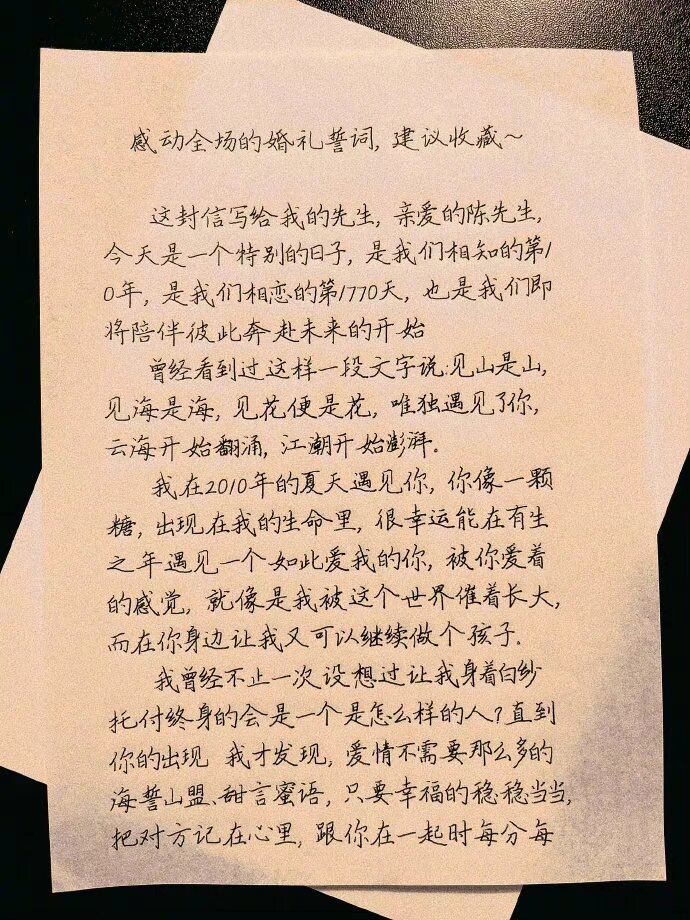 感动全场的婚礼誓词,建议收藏~
这封信写给我的先生,亲爱的陈先生,
今天是一个特别的日子,是我们相知的第1
0年,是我们相恋的第1770天,也是我们即
将陪伴彼此奔赴未来的开始
曾经看到过这样一段文字说:见山是山,
见海是海,见花便是花,唯独遇见了你,
云海开始翻涌,江潮开始澎湃。
我在2010年的夏天遇见你,你像一颗
糖,出现在我的生命里,很幸运能在有生
之年遇见一个如此爱我的你,被你爱着
的感觉,就像是我被这个世界催着长大,
而在你身边让我又可以继续做个孩子。
我曾经不止一次设想过让我身着白纱
托付终身的会是一个是怎么样的人?直到
你的出现 我才发现,爱情不需要那么多的
海誓山盟、甜言蜜语,只要幸福的稳稳当当,
把对方记在心里,跟你在一起时每分每